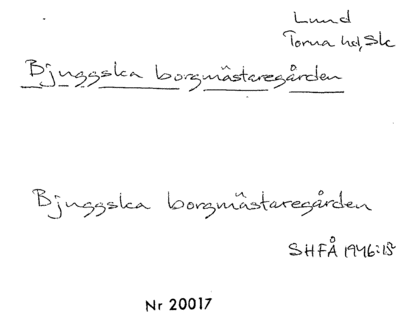 Lund
Torna hd, Sk
Bjuggska borgmästaregården
Bjuggska borgmästaregården
SHFÅ 1946:15
Nr 20017